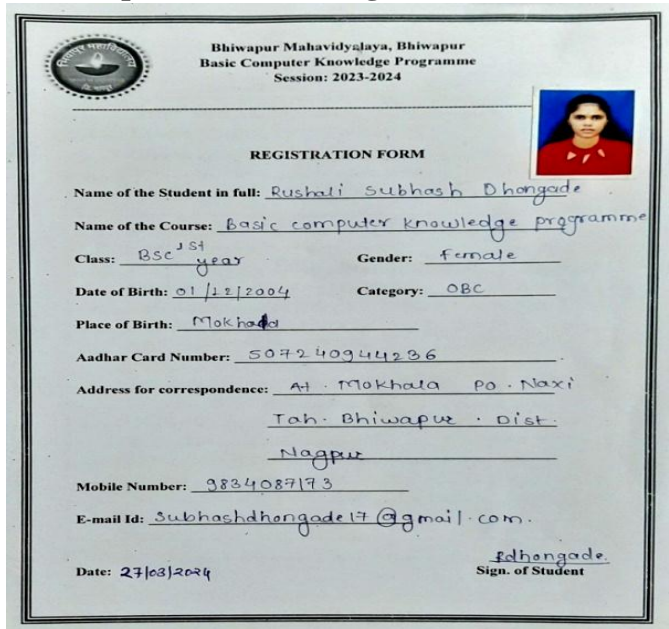 Bhiwapur Mahavidyalaya, Bhiwapur
Basic Computer Knowledge Programme
Session: 2023-2024
REGISTRATION FORM
Name of the Student in full: Rushali Subhash Dhongade
Name of the Course: Basic computer knowledge programme
Class: BSC 1st year Gender: female
Date of Birth: 01/12/2004 Category: OBC
Place of Birth: Mokhala
Aadhar Card Number: 507240944236
Address for correspondence: At. Mokhala Po. Naxi
Tah. Bhiwapur. Dist.
Nagpur
Mobile Number: 9834087173
E-mail Id: Subhashdhongade17@gmail.com.
Rdhongade.
Date: 27/03/2024 Sign. of Student